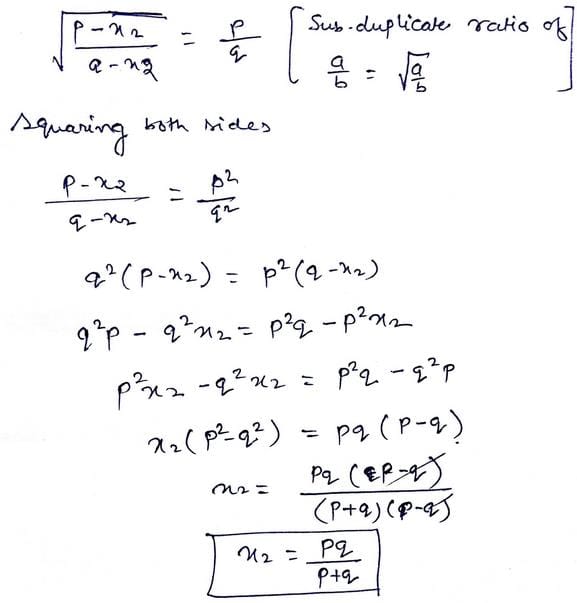 √((p-x2)/(q-x2)) = p/q [Sub-duplicate ratio of
a/b = √(a/b)]
Squaring both sides
(p-x2)/(q-x2) = p²/q²
q²(p-x2) = p²(q-x2)
q²p - q²x2 = p²q - p²x2
p²x2 - q²x2 = p²q - q²p
x2(p²-q²) = pq(p-q)
x2 = pq(p-q)/(p+q)(p-q)
x2 = pq/(p+q)